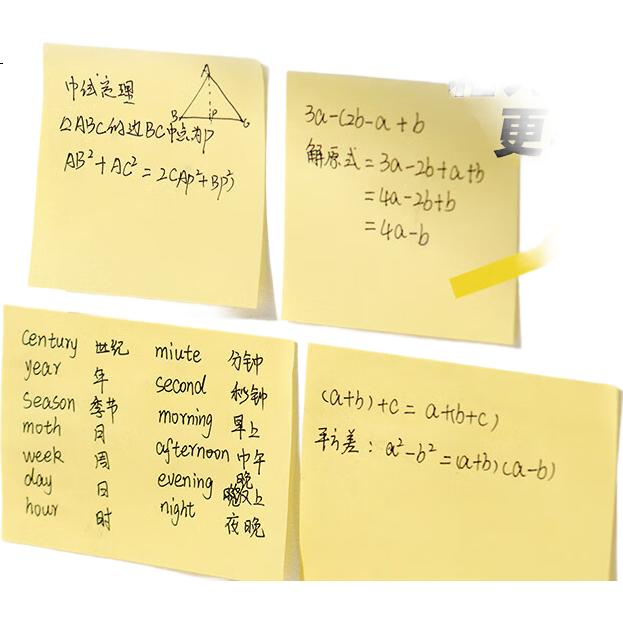 中线定理
△ABC的边BC中点为P
AB²+AC²=2(AP²+BP²)
A
B
P
C
更
3a-(2b-a+b
解原式=3a-2b+a+b
=4a-2b+b
=4a-b
century 世纪
year 年
season 季节
moth 月
week 周
day 日
hour 时
miute 分钟
second 秒钟
morning 早上
afternoon 中午
evening 晚上
night 夜晚
(a+b)+c=a+(b+c)
平方差：a²-b²=(a+b)(a-b)